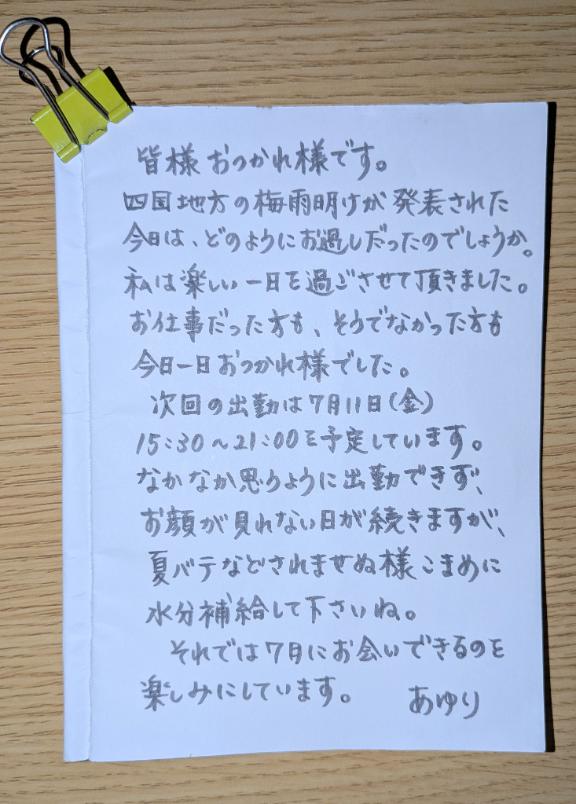 皆様おつかれ様です。
四国地方の梅雨明けが発表された
今日は、どのようにお過しだったのでしょうか。
私は楽しい一日を過ごさせて頂きました。
お仕事だった方も、そうでなかった方も
今日一日おつかれ様でした。
次回の出勤は7月11日(金)
15:30~21:00を予定しています。
なかなか思うように出勤できず、
お顔が見れない日が続きますが、
夏バテなどされませぬ様こまめに
水分補給して下さいね。
それでは7月にお会いできるのを
楽しみにしています。 あゆり